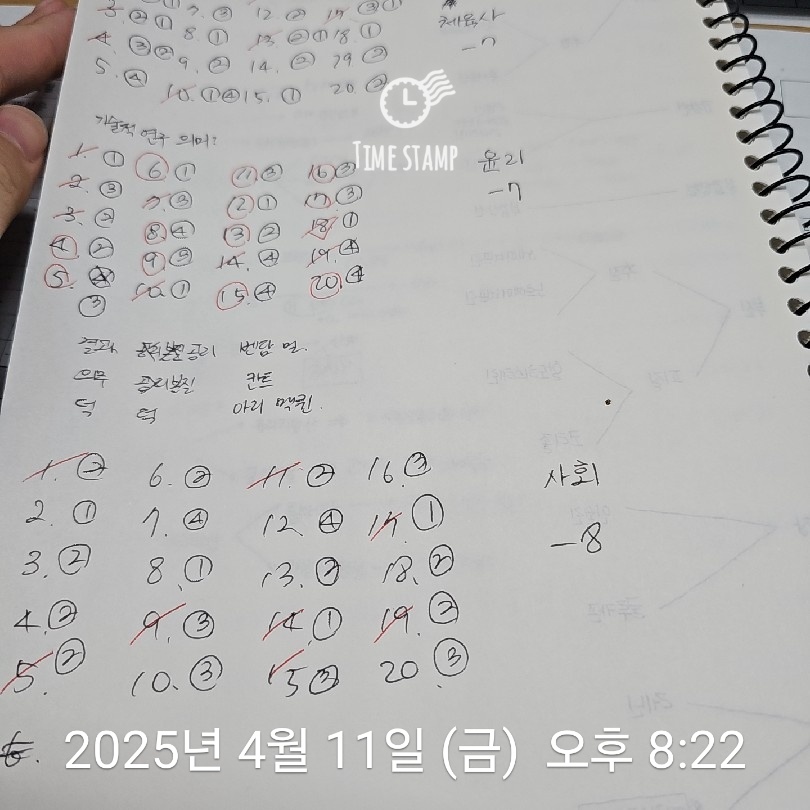 3. ② ① 7. ③ 12 ② 17. ③ ①
체육사
4. ③ ② 8. ① 13. ② ① 18. ①
-7
5. ④ 9. ② 14. ② 19 ③
10. ① ④ 15. ① 20 ②
TIME STAMP
기술적 연구 의미?
윤리
-7
1. ① 6 ① 11 ③ 16 ③
2. ③ 7. ③ 12 ① 17 ③
3. ② 8 ④ 13 ② 18 ①
4 ② 9 ③ 14. ④ 19. ④
5. ③ 10 ① 15 ④ 20 ④
결과 공리 벤담 밀.
의무 칸트
덕 덕 아리 맥킨.
사회
-8
1. ② 6. ② 11. ② 16. ③
2. ① 7. ④ 12 ④ 17. ①
3. ② 8. ① 13. ② 18. ②
4. ② 9. ③ 14 ① 19. ②
5. ② 10. ③ 15 ② 20 ③
6.
2025년 4월 11일 (금) 오후 8:22